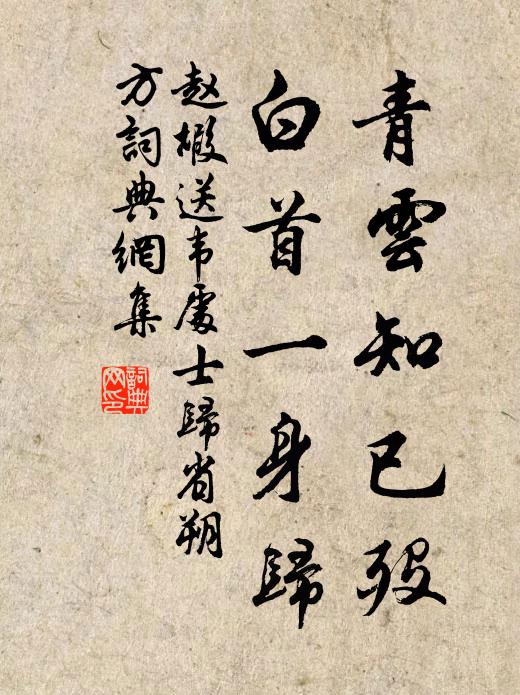 青雲知已殁
白首一身歸
赵嘏送韦處士歸省朔
方詞典網集
詞典
网印